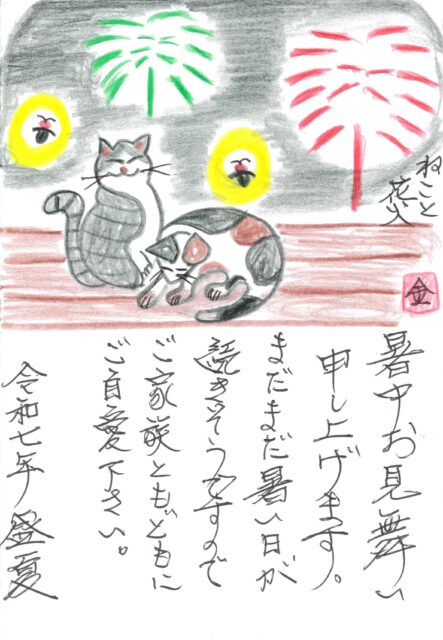 ねこと
花火
金
暑中お見舞い
申し上げます。
まだまだ暑い日が
続きそうですので
ご家族ともどもに
ご自愛下さい。
令和七年 盛夏